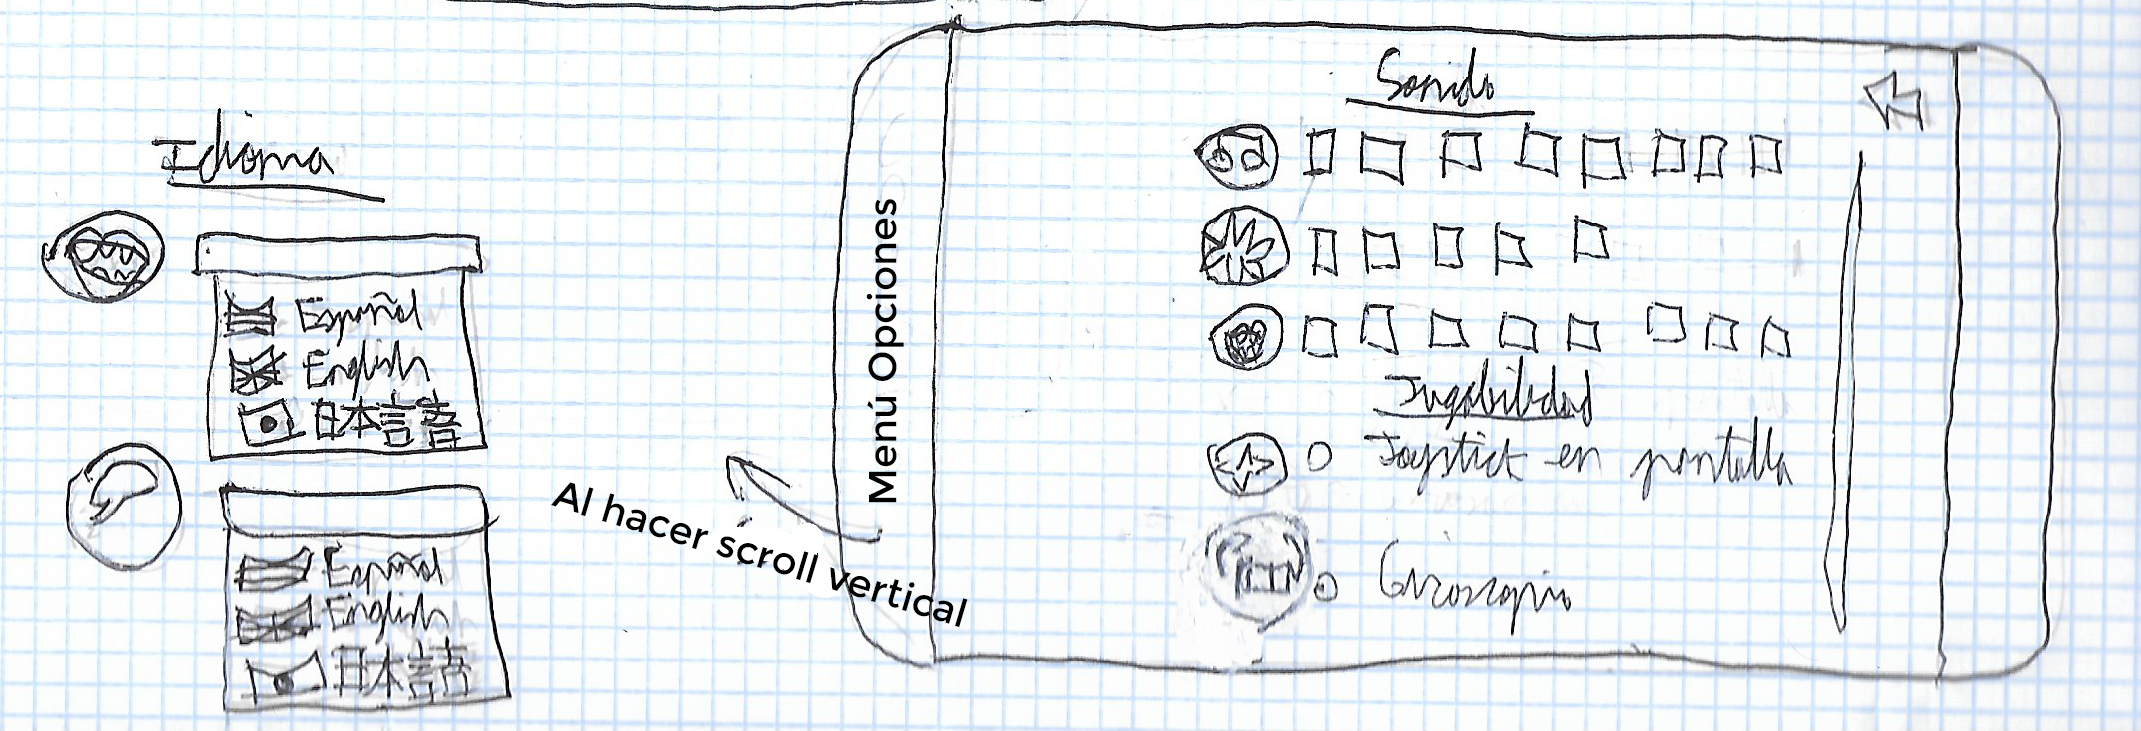 Idioma
Español
English
日本言語
Español
English
日本言語
Al hacer scroll vertical
Menú Opciones
Sonido
Jugabilidad
Joystick en pantalla
Giroscopio